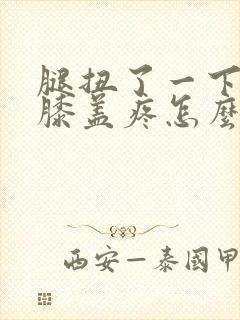 腿扭了一下
膝盖疼怎麽
西安—泰國甲